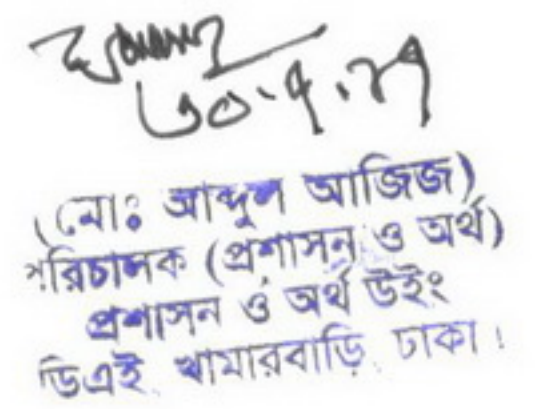 ৩০.৭.২৭
(মোঃ আব্দুল আজিজ)
পরিচালক (প্রশাসন ও অর্থ)
প্রশাসন ও অর্থ উইং
ডিএই, খামারবাড়ি, ঢাকা।